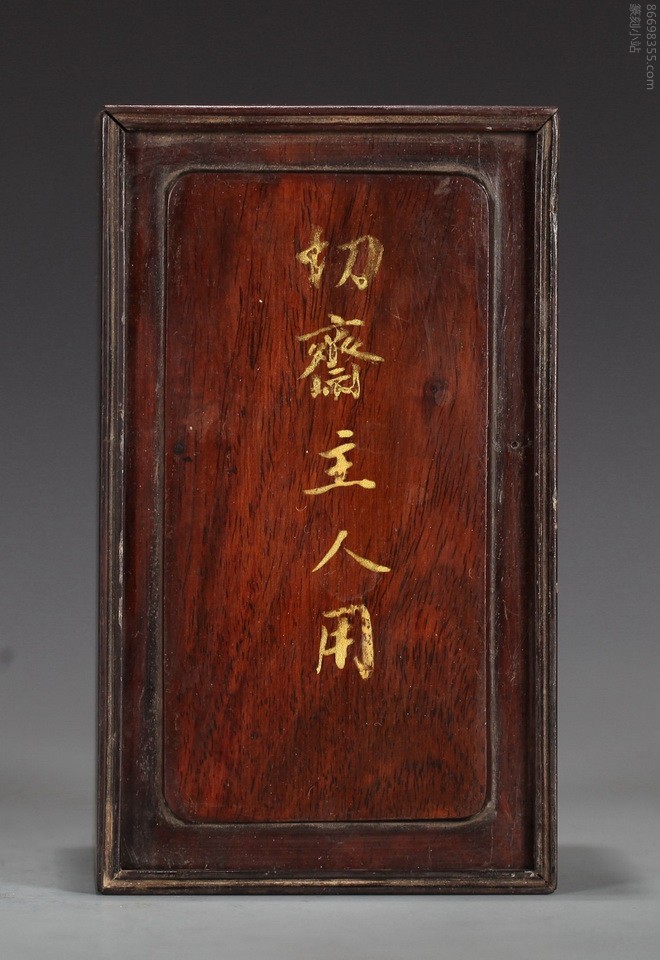 切齋主人用
86698355.com
篆刻小站